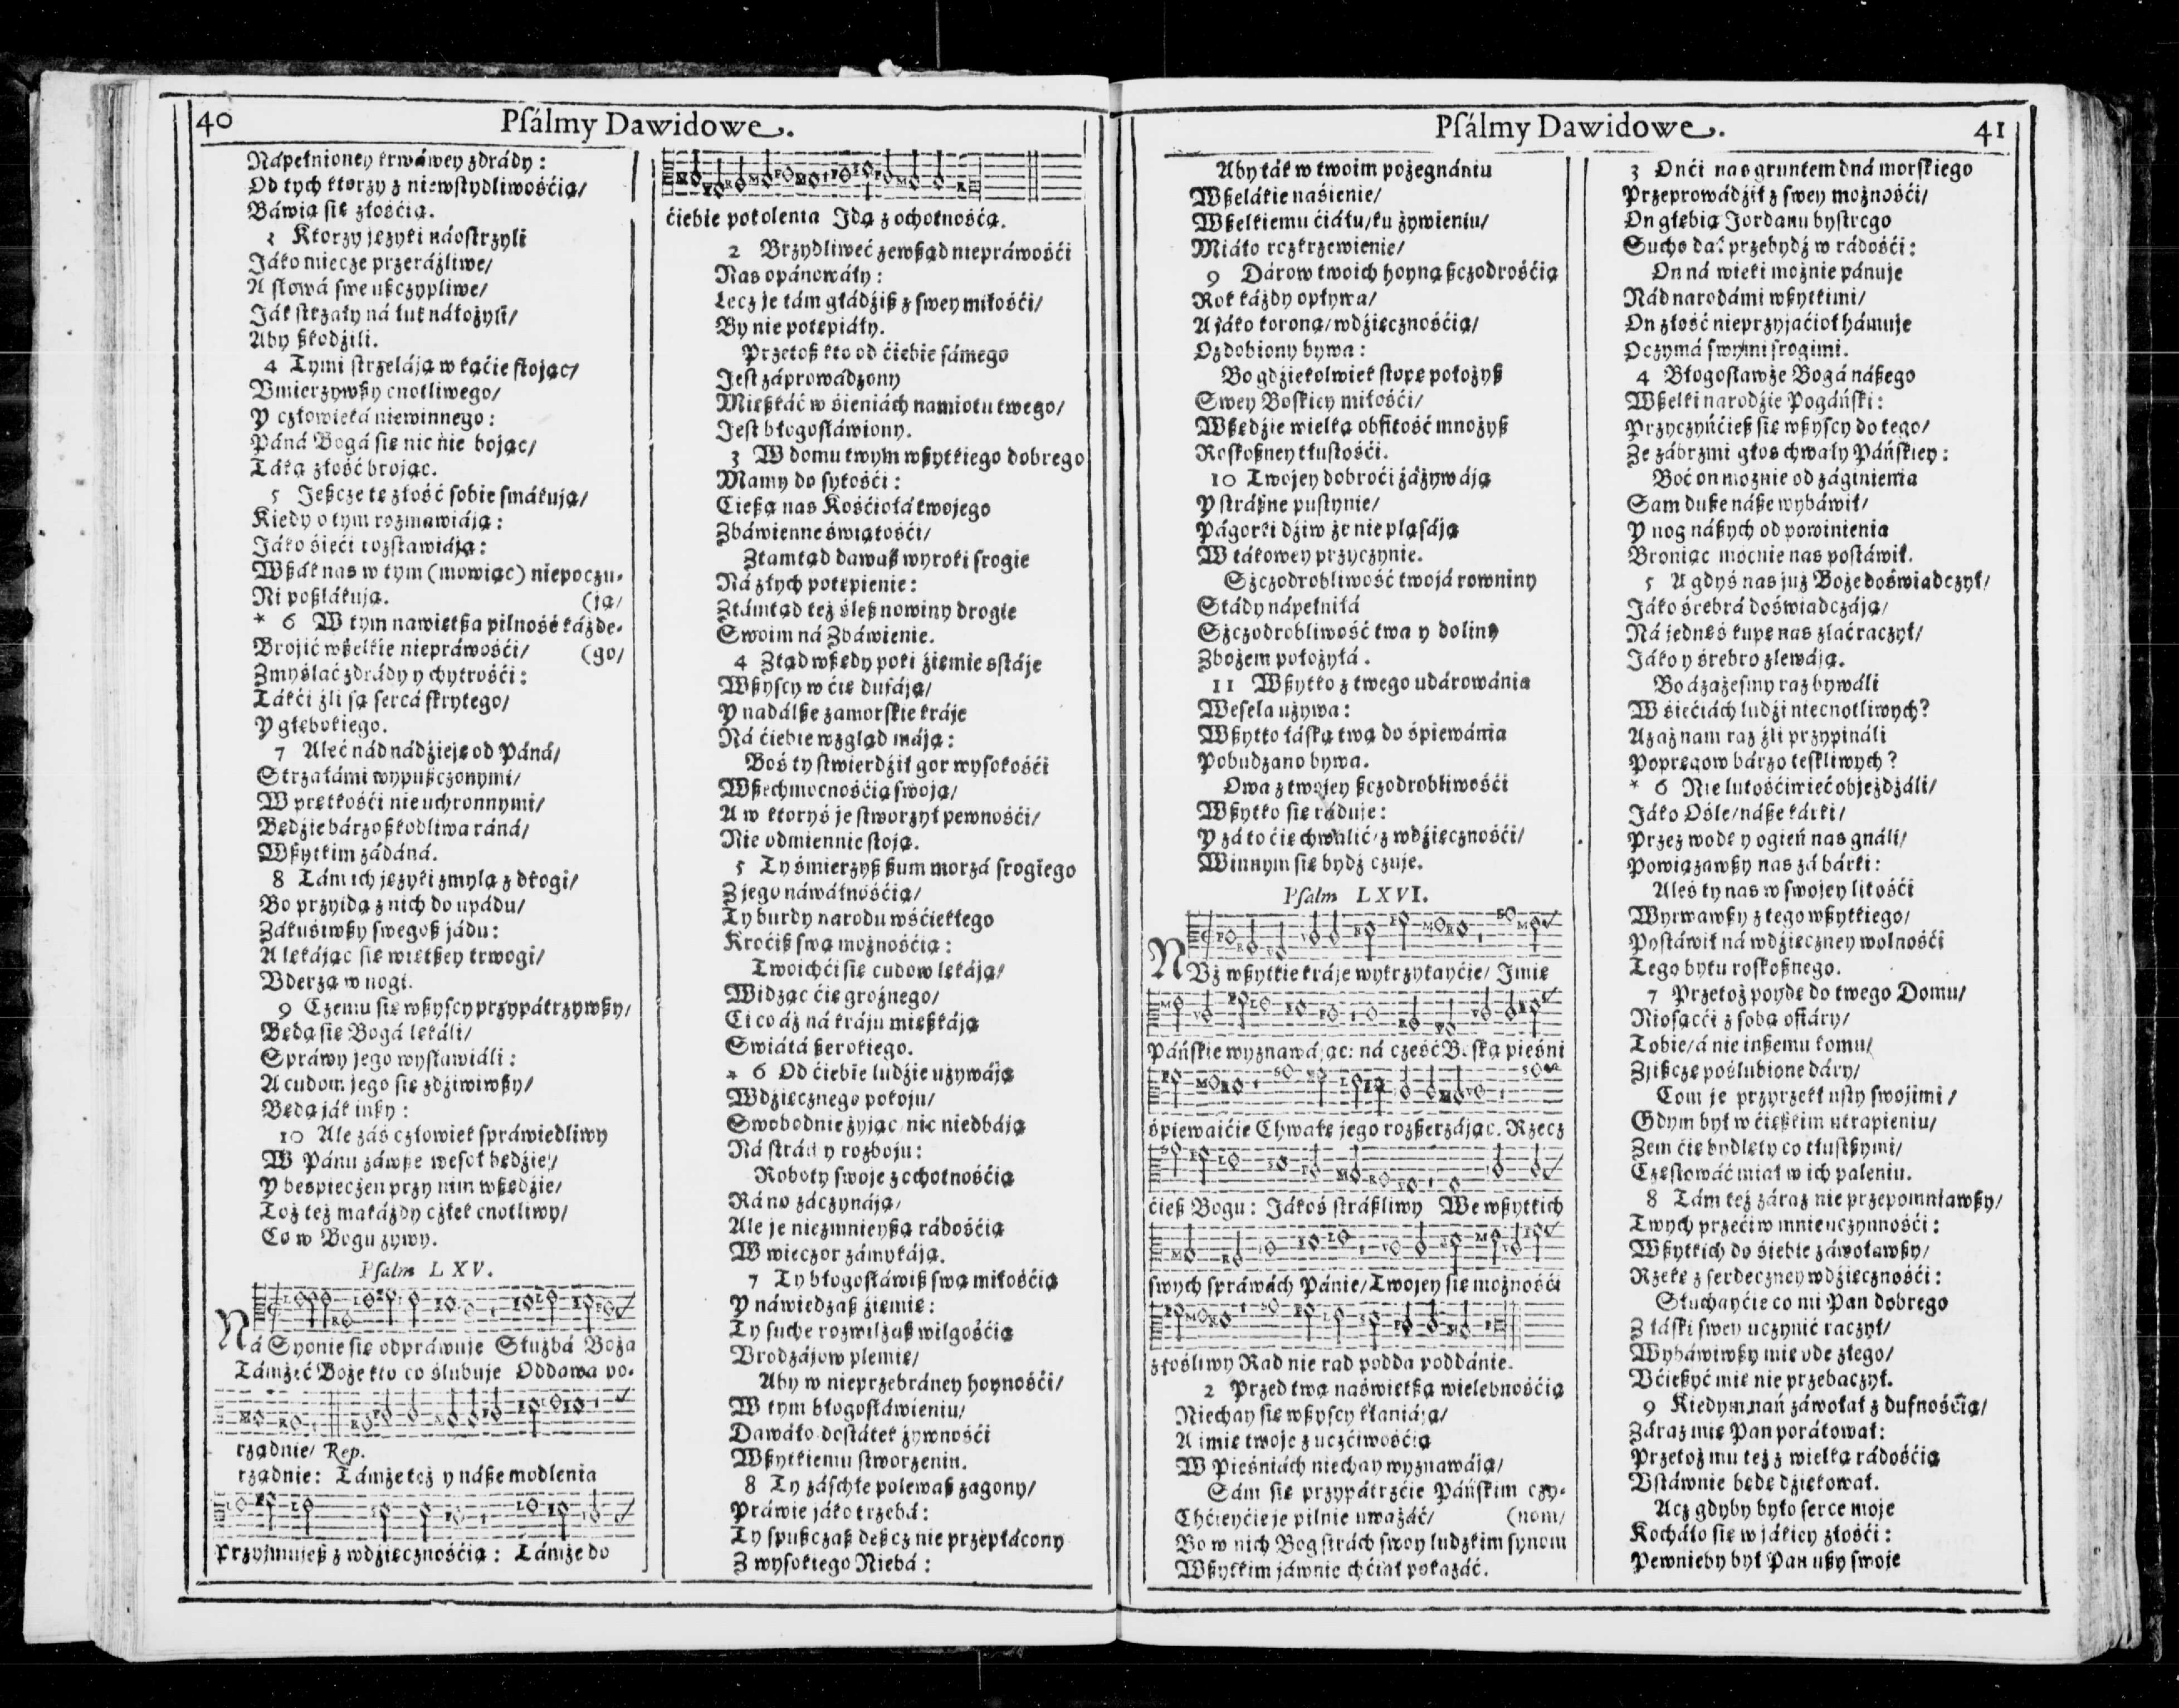 40
Pſálmy Dawidowe.
Nápełnioney krwáwey zdrády:
Od tych ktorzy z niewſtydliwośćią/
Báwią ſię złośćią.
3 Ktorzy języki náoſtrzyli
Jáko miecze przeráźliwe/
A ſłowá ſwe ußczypliwe/
Ják ſtrzały ná łuk náłożyli/
Aby ßkodźili.
4 Tymi ſtrzeláją w kąćie ſtojąc/
Vmierzywßy cnotliwego/
Y człowieká niewinnego:
Páná Bogá ſię nic nie bojąc/
Táką złość brojąc.
5 Jeßcze tę złość ſobie ſmákują/
Kiedy o tym rozmawiáją:
Jáko śieći rozſtawiáją:
Wßák nas w tym (mowiąc) niepoczu-
Ni poßlákują. (ją/
* 6 W tym nawiętßa pilność káżde-
Broić wßelkie niepráwośći/ (go/
Zmyślać zdrády y chytrośći:
Tákći źli ſą ſercá ſkrytego/
Y głębokiego.
7 Aleć nád nádźieję od Páná/
Strzałámi wypußczonymi/
W prętkośći nieuchronnymi/
Będźie bárzo ßkodliwa ráná/
Wßytkim zádáná.
8 Tám ich języki zmylą z drogi/
Bo przyidą z nich do upádu/
Zákuśiwßy ſwegoß jádu:
A lękájąc ſię więtßey trwogi/
Vderzą w nogi.
9 Czemu ſię wßyſcy przypátrzywßy/
Będą ſię Bogá lękáli/
Spráwy jego wyſławiáli:
A cudom jego ſię zdźiwiwßy/
Będą ják inßy:
10 Ale záś człowiek ſpráwiedliwy
W Pánu záwße weſoł będźie/
Y beſpieczen przy nim wßędźie/
Toż też ma káżdy człek cnotliwy/
Co w Bogu żywy.
Pſalm LXV.
Ná Syonie ſię odpráwuje Służbá Boża
Támżeć Boże kto co ślubuje Oddawa po-
rządnie/ Rep.
rządnie: Támże też y náße modlenia
Przyjmujeß z wdźięcznośćią: Támże do
ćiebie pokolenia Jdą z ochotnośćą.
2 Brzydliweć zewßąd niepráwośći
Nas opánowáły:
Lecz je tám głádźiß z ſwey miłośći/
By nie potępiáły.
Przetoß kto od ćiebie ſámego
Jeſt záprowádzony
Mießkáć w śieniách namiotu twego/
Jeſt błogoſłáwiony.
3 W domu twym wßytkiego dobrego
Mamy do ſytośći:
Ćießą nas Kośćiołá twojego
Zbáwienne świątośći/
Ztamtąd dawaß wyroki ſrogie
Ná złych potępienie:
Ztámtąd też śleß nowiny drogie
Swoim ná Zbáwienie.
4 Ztąd wßędy poki źiemie sſtáje
Wßyſcy w ćię dufáją/
Y nadálße zamorſkie kráje
Ná ćiebie wzgląd máją:
Boś ty ſtwierdźił gor wyſokośći
Wßechmocnośćią ſwoją/
A w ktoryś je ſtworzył pewnośći/
Nie odmiennie ſtoją.
5 Ty śmierzyß ßum morzá ſrogiego
Z jego náwáłnośćią/
Ty burdy narodu wśćiekłego
Kroćiß ſwą możnośćią:
Twoichći ſię cudow lękáją/
Widząc ćię groźnego/
Ci co áż ná kráju mießkáją
Swiátá ßerokiego.
* 6 Od ćiebie ludźie używáją
Wdźięcznego pokoju/
Swobodnie żyjąc/ nic niedbáją
Ná ſtrách y rozboju:
Roboty ſwoje z ochotnośćią
Ráno záczynáją/
Ale je niezmnieyßą rádośćią
W wieczor zámykáją.
7 Ty błogoſłáwiß ſwą miłośćią
Y náwiedzaß źiemię:
Ty ſuche rozwilżaß wilgośćią
Vrodzájow plemię/
Aby w nieprzebráney hoynośći/
W tym błogoſłáwieniu/
Dawáło doſtátek żywnośći
Wßytkiemu ſtworzeniu.
8 Ty záſchłe polewaß zagony/
Práwie jáko trzebá:
Ty ſpußczaß deßcz nie przepłácony
Z wyſokiego Niebá:
Pſálmy Dawidowe.
41
Aby ták w twoim pożegnániu
Wßelákie naśienie/
Wßelkiemu ćiáłu/ ku żywieniu/
Miáło rozkrzewienie/
9 Dárow twoich hoyną ßczodrośćią
Rok káżdy opływa/
A jáko koroną/ wdźięcznośćią/
Ozdobiony bywa:
Bo gdźiekolwiek ſtopę położyß
Swey Boſkiey miłośći/
Wßędźie wielką obfitość mnożyß
Roſkoßney tłuſtośći.
10 Twojey dobroći záżywáją
Y ſtráßne puſtynie/
Págorki dźiw że nie pląſáją
W tákowey przyczynie.
Sżczodrobliwość twojá rowniny
Stády nápełniłá
Sżczodrobliwość twa y doliny
Zbożem położyłá.
11 Wßytko z twego udárowánia
Weſela używa:
Wßytko łáſką twą do śpiewánia
Pobudzano bywa.
Owa z twojey ßczodrobliwośći
Wßytko ſię ráduje:
Y zá to ćię chwalić/ z wdźięcznośći/
Winnym ſię bydź czuje.
Pſalm LXVI.
NVż wßytkie kráje wykrzykayćie/ Jmię
Páńſkie wyznawájąc: ná cześć Boſką pieśni
śpiewaićie Chwałę jego rozßerzájąc. Rzecz
ćieß Bogu: Jákoś ſtráßliwy We wßytkich
ſwych ſpráwách Pánie/ Twojey ſię możnośći
złośliwy Rad nie rad podda poddánie.
2 Przed twą naświętßą wielebnośćią
Niechay ſię wßyſcy kłániáją/
A imię twoje z uczćiwośćią
W pieśniách niechay wyznawáją/
Sám ſię przypátrzćie Páńſkim czy-
Chćieyćie je pilnie uważáć/ (nom/
Bo w nich Bog ſtrách ſwoy ludzkim ſynom
Wßytkim jáwnie chćiał pokazáć.
3 Onći nas gruntem dná morſkiego
Przeprowádźił z ſwey możnośći/
On głębią Jordanu byſtrego
Sucho dał przebydź w rádośći:
On ná wieki możnie pánuje
Nád narodámi wßytkimi/
On złość nieprzyjaćioł hámuje
Oczymá ſwymi ſrogimi.
4 Błogoſławże Bogá náßego
Wßelki narodźie Pogáńſki:
Przyczyńćieß ſię wßyſcy do tego/
Ze zábrzmi głos chwały Páńſkiey:
Boć on możnie od záginienia
Sam duße náße wybáwił/
Y nog náßych od powinienia
Broniąc mocnie nas poſtáwił.
5 A gdyś nas już Boże doświadczył/
Jáko śrebrá doświadczáją/
Ná jednęś kupę nas zlać raczył/
Jáko y śrebro zlewáją.
Bo ázażeſmy raz bywáli
W śiećiách ludźi niecnotliwych?
Azaż nam raz źli przypináli
Popręgow bárzo teſkliwych?
* 6 Nie lutośćiwieć objeżdżáli/
Jáko Ośle/ náße kárki/
Przez wodę y ogień nas gnáli/
Powiązawßy nas zá bárki:
Aleś ty nas w ſwojey litośći
Wyrwawßy z tego wßytkiego/
Poſtáwił ná wdźięczney wolnośći
Tego bytu roſkoßnego.
7 Przetoż poydę do twego Domu/
Nioſącći z ſobą ofiáry/
Tobie/ á nie inßemu komu/
Zjißczę poślubione dáry/
Com je przyrzekł uſty ſwojimi/
Gdym był w ćięßkim utrapieniu/
Zem ćię bydlęty co tłuſtßymi/
Częſtowáć miał w ich paleniu.
8 Tám też záraz nie przepomniawßy/
Twych przećiw mnie uczynnośći:
Wßytkich do śiebie záwoławßy/
Rzekę z ſerdeczney wdźięcznośći:
Słuchayćie co mi Pan dobrego
Z łáſki ſwey uczynić raczył/
Wybáwiwßy mię ode złego/
Vćießyć mię nie przebaczył.
9 Kiedym nań záwołał z dufnośćią/
Záraz mię Pan porátował:
Przetoż mu też z wielką rádośćią
Vſtáwnie będę dźiękował.
Acz gdyby było ſerce moje
Kocháło ſię w jákiey złośći:
Pewnieby był Pan ußy ſwoje